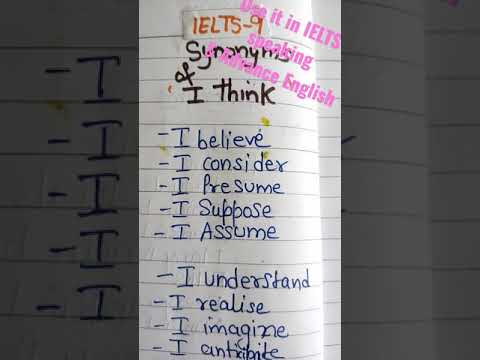 Use it in IELTS
speaking
& Advance English
IELTS-9
Synonyms
of
I think
- I believe
- I consider
- I Presume
- I Suppose
- I Assume
- I understand
- I realise
- I imagine
- I anticipite